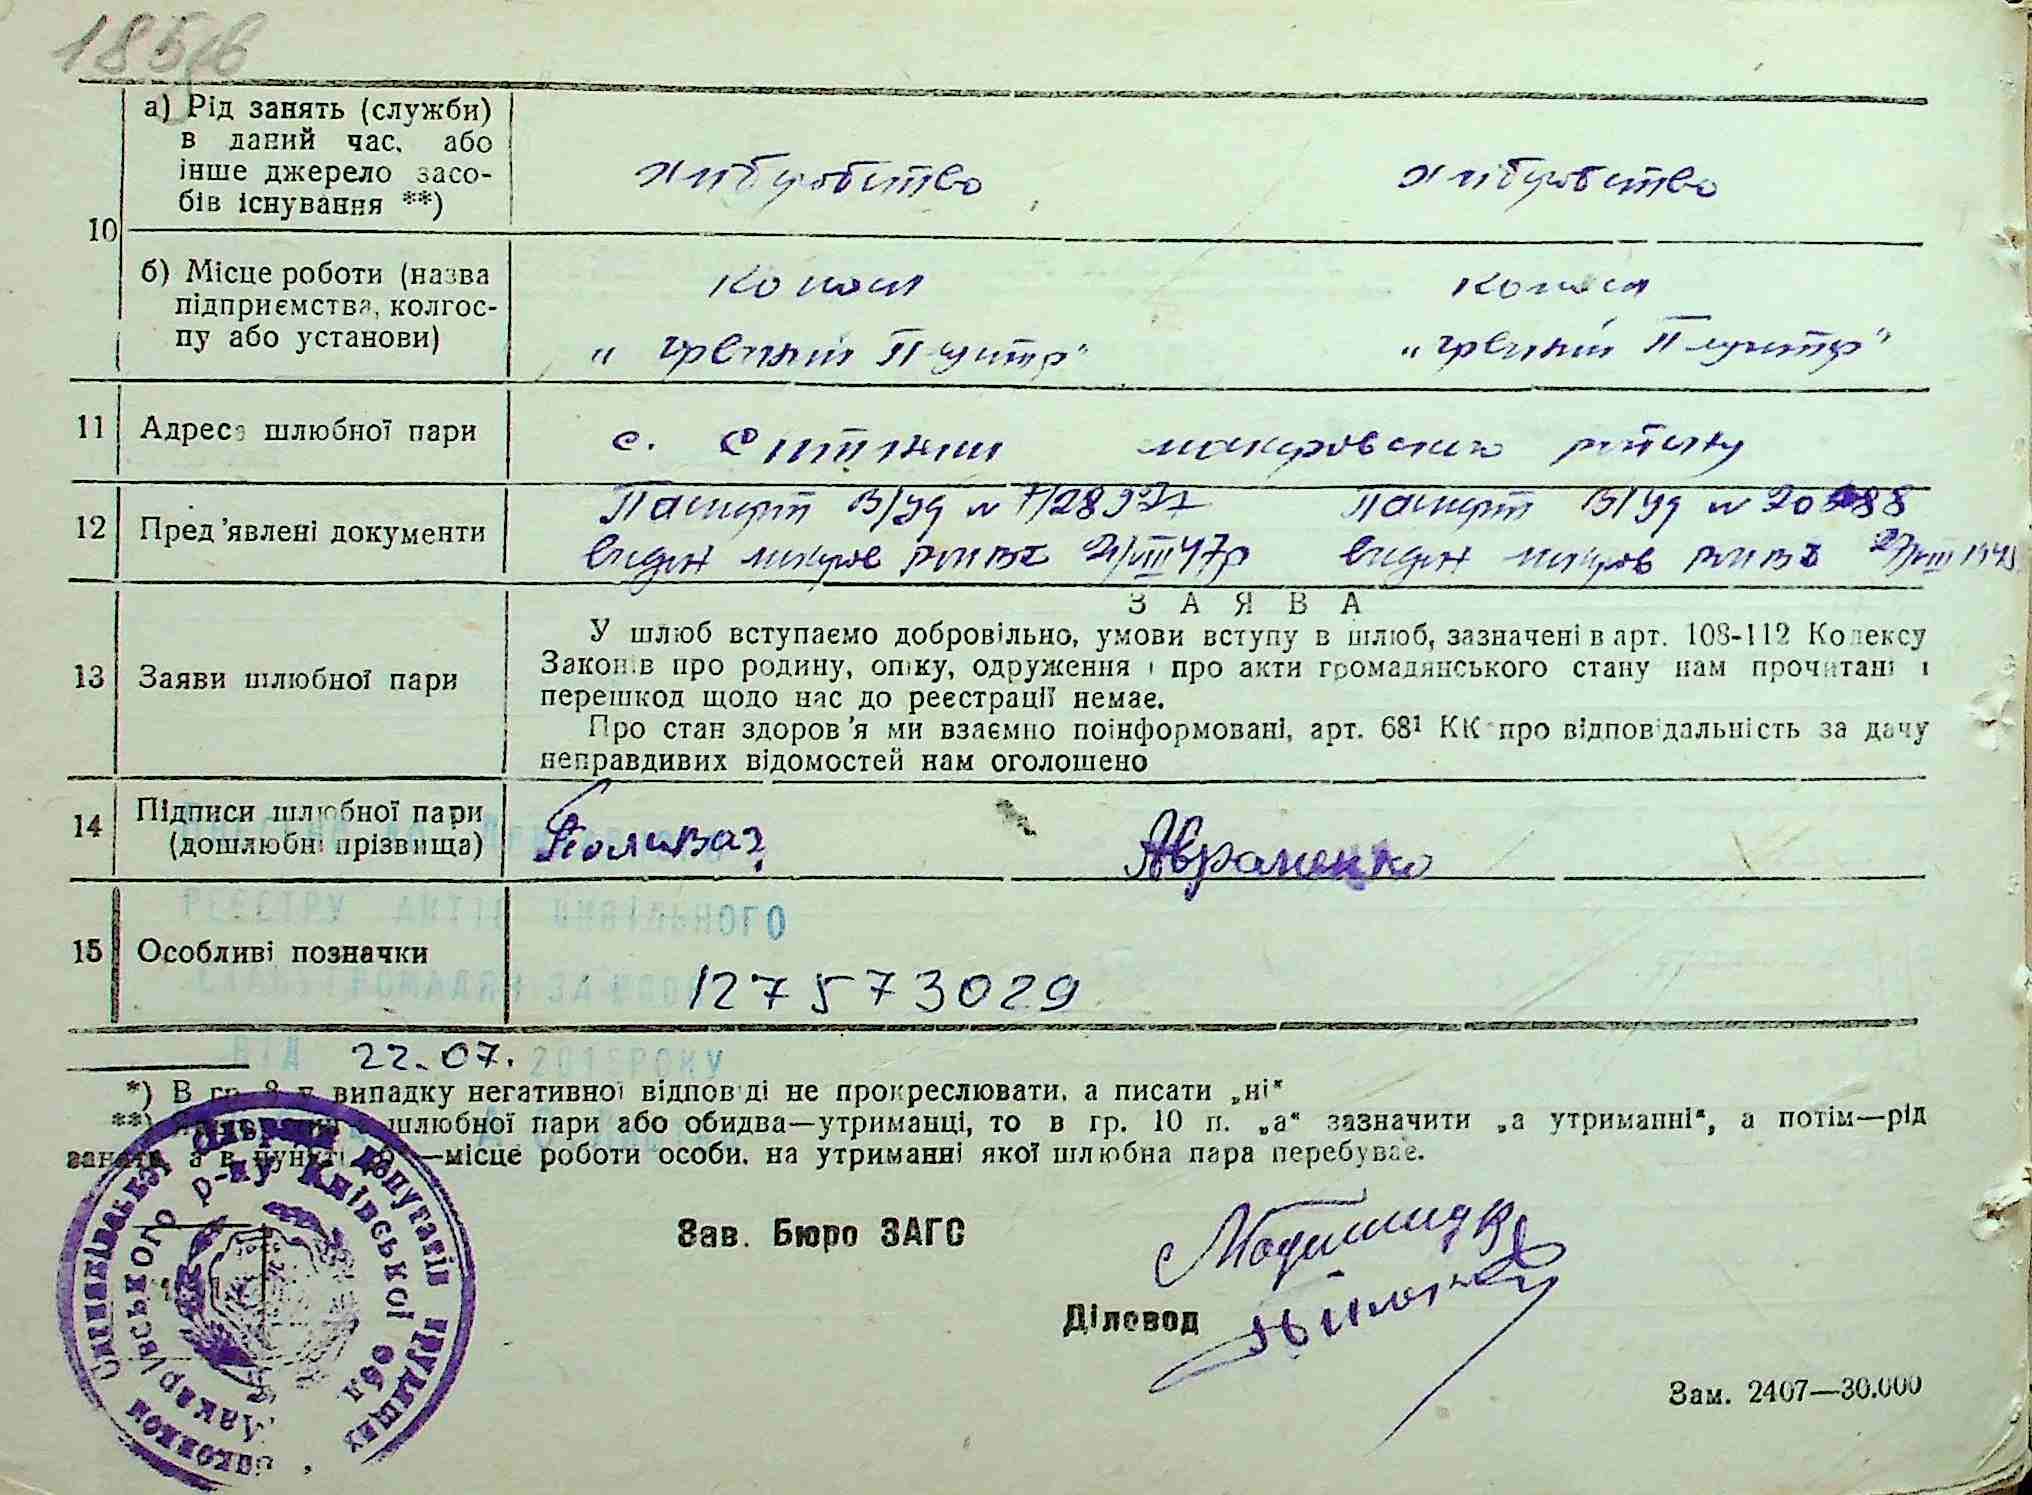 185
10
а) Рід занять (служби)
в даний час, або
інше джерело засо-
бів існування **)
хліборобство хліборобство
б) Місце роботи (назва
підприємства, колгос-
пу або установи)
колгосп колгосп
11 Адреса шлюбної пари
с. макаровского району
12 Пред'явлені документи
Паспорт Паспорт
видан макаров видан макаров
З А Я В А
13 Заяви шлюбної пари
У шлюб вступаємо добровільно, умови вступу в шлюб, зазначені в арт. 108-112 Кодексу
Законів про родину, опіку, одруження і про акти громадянського стану нам прочитані і
перешкод щодо нас до реєстрації немає.
Про стан здоров'я ми взаємно поінформовані, арт. 68¹ КК про відповідальність за дачу
неправдивих відомостей нам оголошено
14 Підписи шлюбної пари
(дошлюбні прізвища)
Поливач Авраменко
РЕЄСТРУ АКТІВ ЦИВІЛЬНОГО
15 Особливі позначки
СТАНУ ГРОМАДЯН ЗА
127573029
ВІД 22.07. РОКУ
*) В гр. 8 у випадку негативної відповіді не прокреслювати, а писати „ні“
**) шлюбної пари або обидва—утриманці, то в гр. 10 п. „а“ зазначити „а утриманні“, а потім—рід
занять, а в пункті —місце роботи особи, на утриманні якої шлюбна пара перебуває.
депутатів трудящих
Макарівського р-ну Київської обл
Зав. Бюро ЗАГС
Діловод
Зам. 2407—30.000